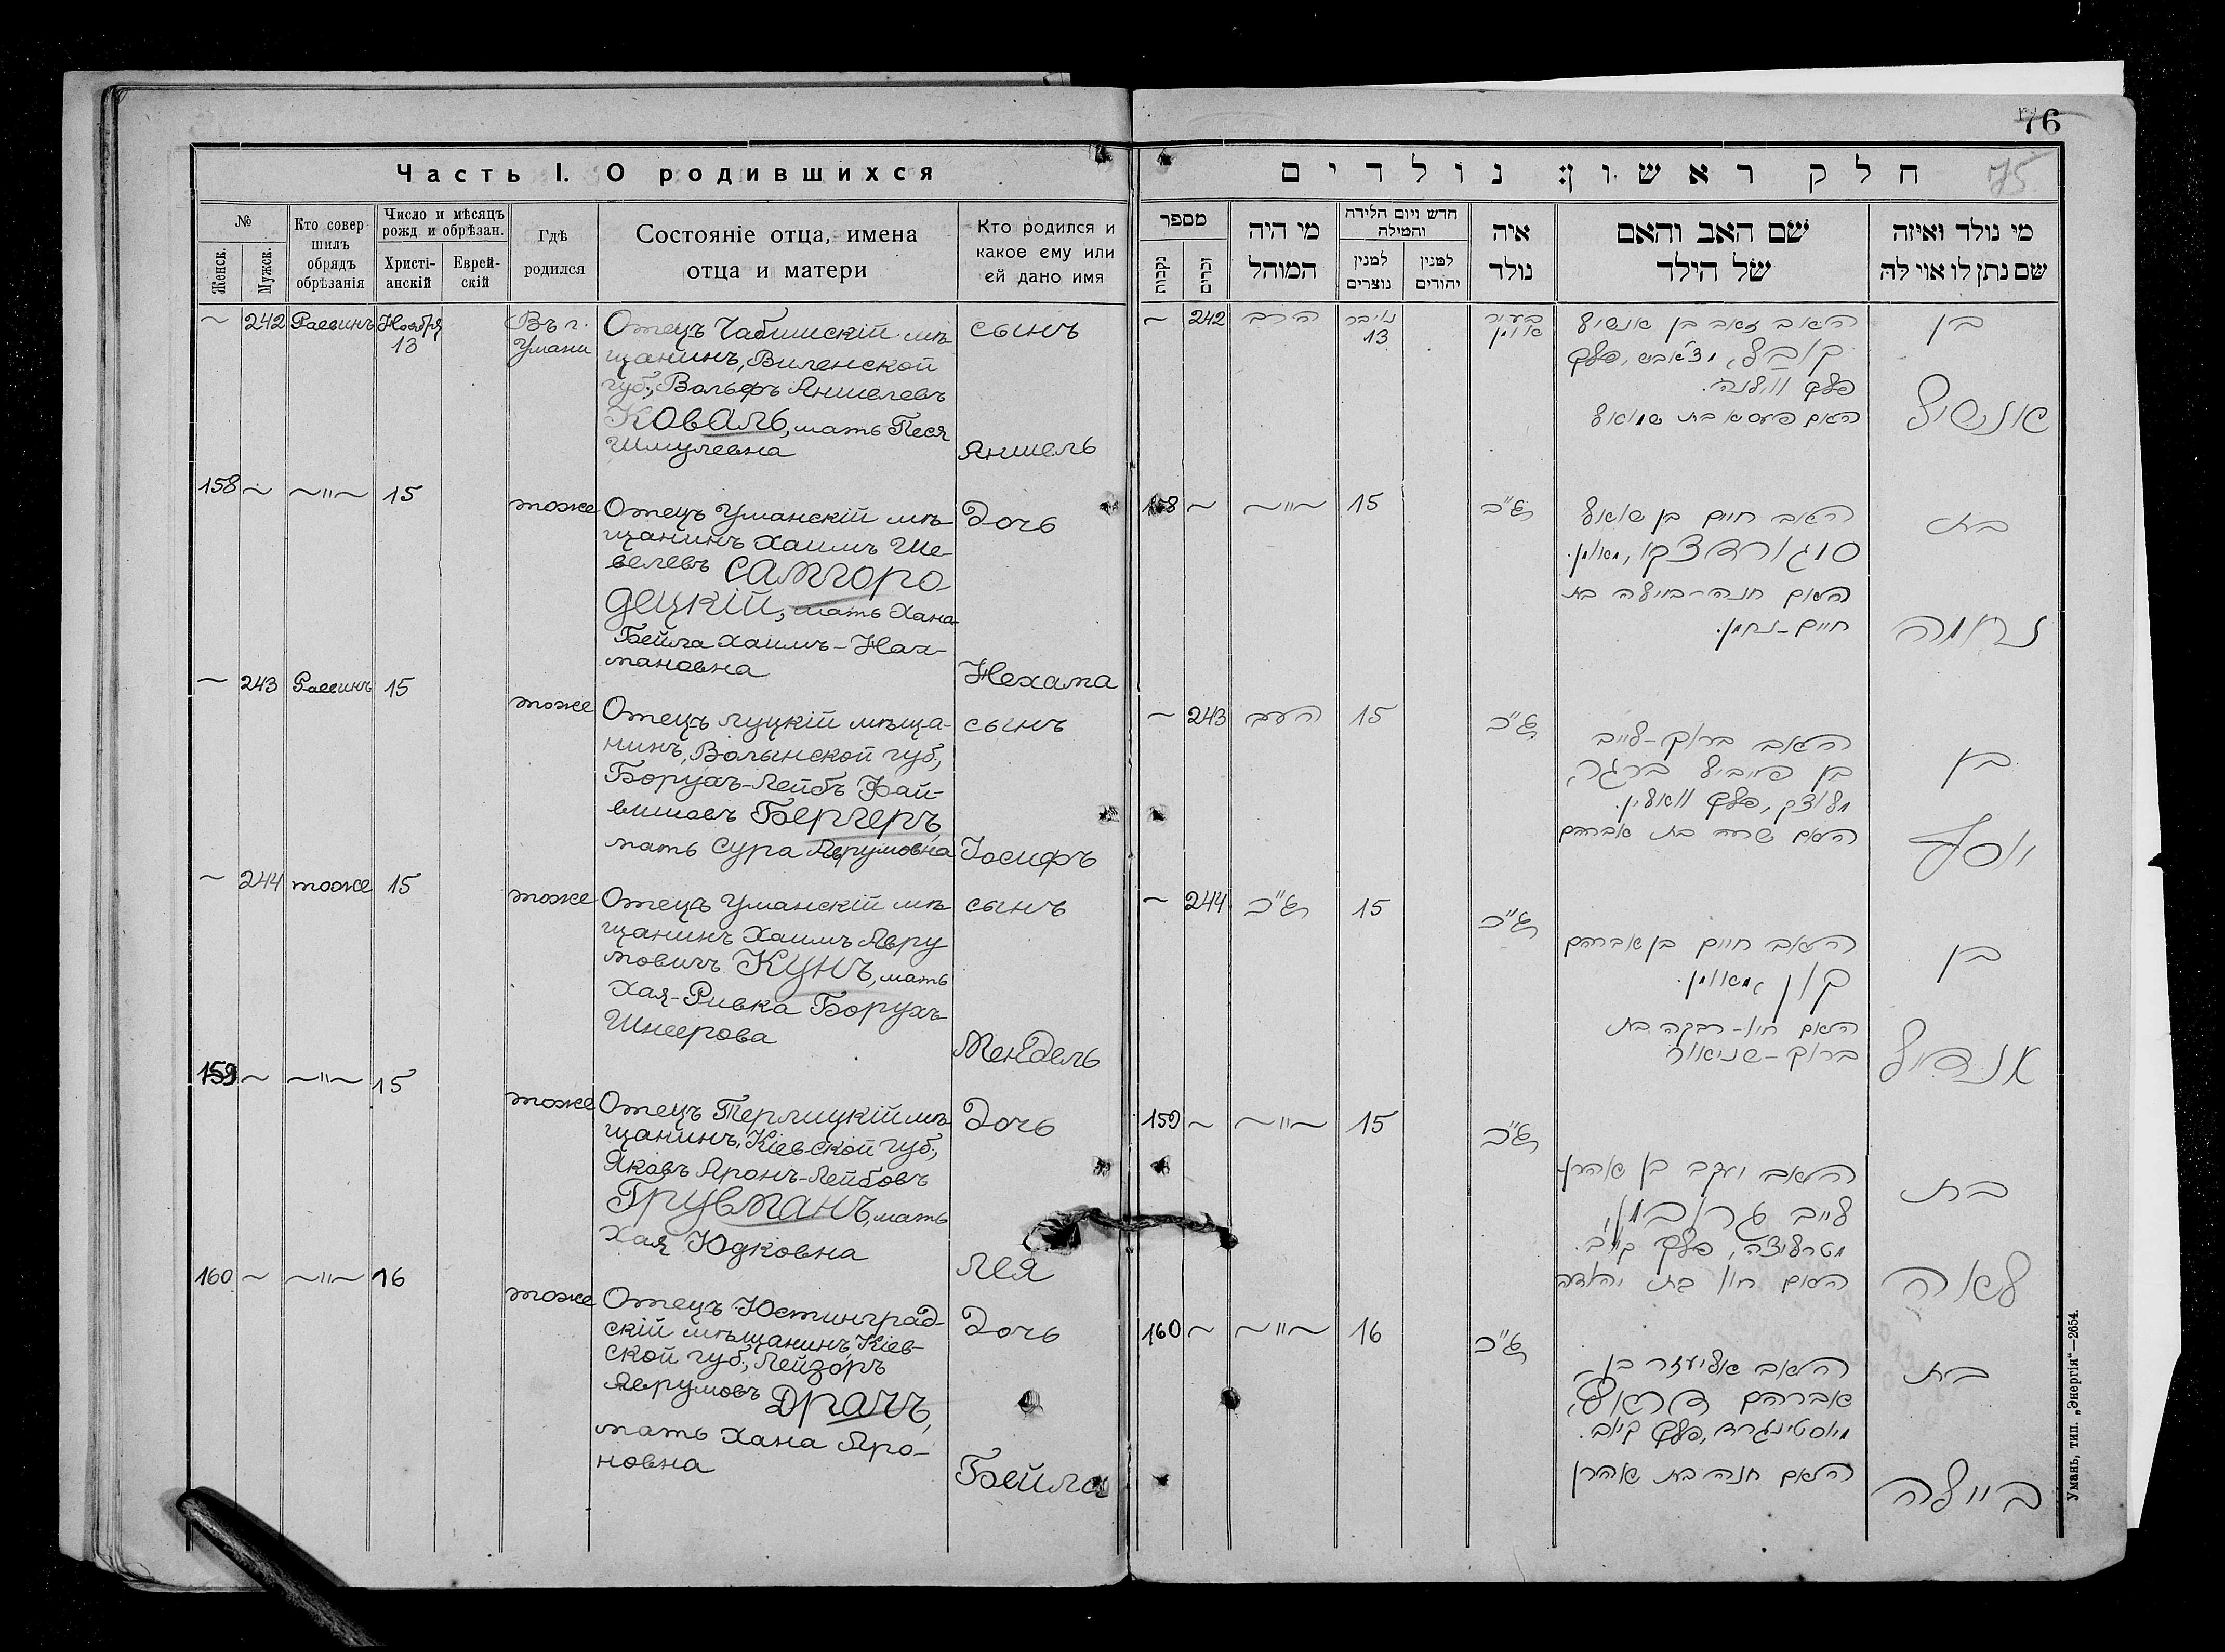 Часть I. О родившихся
№
Женск.
Мужск.
Кто совер
шилъ
обрядъ
обрѣзанія
Число и мѣсяцъ
рожд и обрѣзан.
Христі-
анскій
Еврей-
скій
Гдѣ
родился
Состояніе отца, имена
отца и матери
Кто родился и
какое ему или
ей дано имя
~ 242 Раввинъ Ноября
13
Въ г.
Умани
Отецъ Чабишскій мѣ-
щанинъ, Виленской
губ., Вольфъ Аншелевъ
Коваль, мать Песя
Шмулевна
сынъ
Аншель
158 ~ ~"~ 15
тоже
Отецъ Уманскій мѣ-
щанинъ Хаимъ Ше-
велевъ Самгоро-
децкій, мать Хана-
Бейла Хаимъ-Нах-
мановна
дочь
Нехама
~ 243 Раввинъ 15
тоже
Отецъ луцкій мѣща-
нинъ, Волынской губ.,
Борухъ-Лейбъ Фай-
вишовъ Бергеръ,
мать Сура Аврумовна
сынъ
Іосифъ
~ 244 тоже 15
тоже
Отецъ Уманскій мѣ-
щанинъ Хаимъ Авру
мовичъ Кунъ, мать
Хая-Ривка Борухъ-
Шнеерова
сынъ
Мендель
159 ~ ~"~ 15
тоже
Отецъ Терлицкій мѣ-
щанинъ, Кіевской губ.,
Яковъ Аронъ-Лейбовъ
Грувманъ, мать
Хая Юдковна
дочь
Лея
160 ~ ~"~ 16
тоже
Отецъ Юстинград-
скій мѣщанинъ, Кіев-
ской губ., Лейзоръ
Аврумовъ Драчъ,
мать Хана Аро-
новна
дочь
Бейла
76
75
חלק ראשון: נולדים
מספר
נקבות
זכרים
מי היה
המוהל
חדש ויום הלידה
והמילה
למנין
נוצרים
למנין
יהודים
איה
נולד
שם האב והאם
של הילד
מי נולד ואיזה
שם נתן לו או לה
~ 242 הרב
13
בעיר
אומן
האב זאב בן אנשיל
פלך ווילנה.
האם פעסא בת שמואל
בן
אנשיל
158 ~ ~"~ 15
האב חיים בן שאול
האם חנה-ביילה בת
חיים-נחמן.
בת
נחמה
~ 243 הרב 15
האב ברוך-לייב
בן פייביל ברגר,
מלוצק, פלך וואלין.
האם שרה בת אברהם
בן
יוסף
~ 244 15
האב חיים בן אברהם
קון, מאומן.
האם חיה-רבקה בת
ברוך-שניאור
בן
מנדיל
159 ~ ~"~ 15
האב יעקב בן אהרן
לייב גרובמן,
מטרליצה, פלך קיוב.
האם חיה בת יהודה
בת
לאה
160 ~ ~"~ 16
האב אליעזר בן
אברהם דראטש,
מיוסטינגרד, פלך קיוב.
האם חנה בת אהרן
בת
ביילה
Умань, тип. „Энергія“—2654.